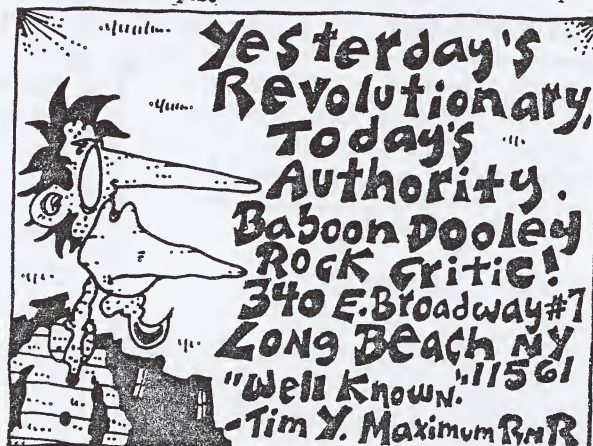 Yesterday's
Revolutionary,
Today's
Authority.
Baboon Dooley
Rock Critic!
340 E. Broadway #7
Long Beach NY
11561
"Well Known."
-Tim Y. Maximum RnR